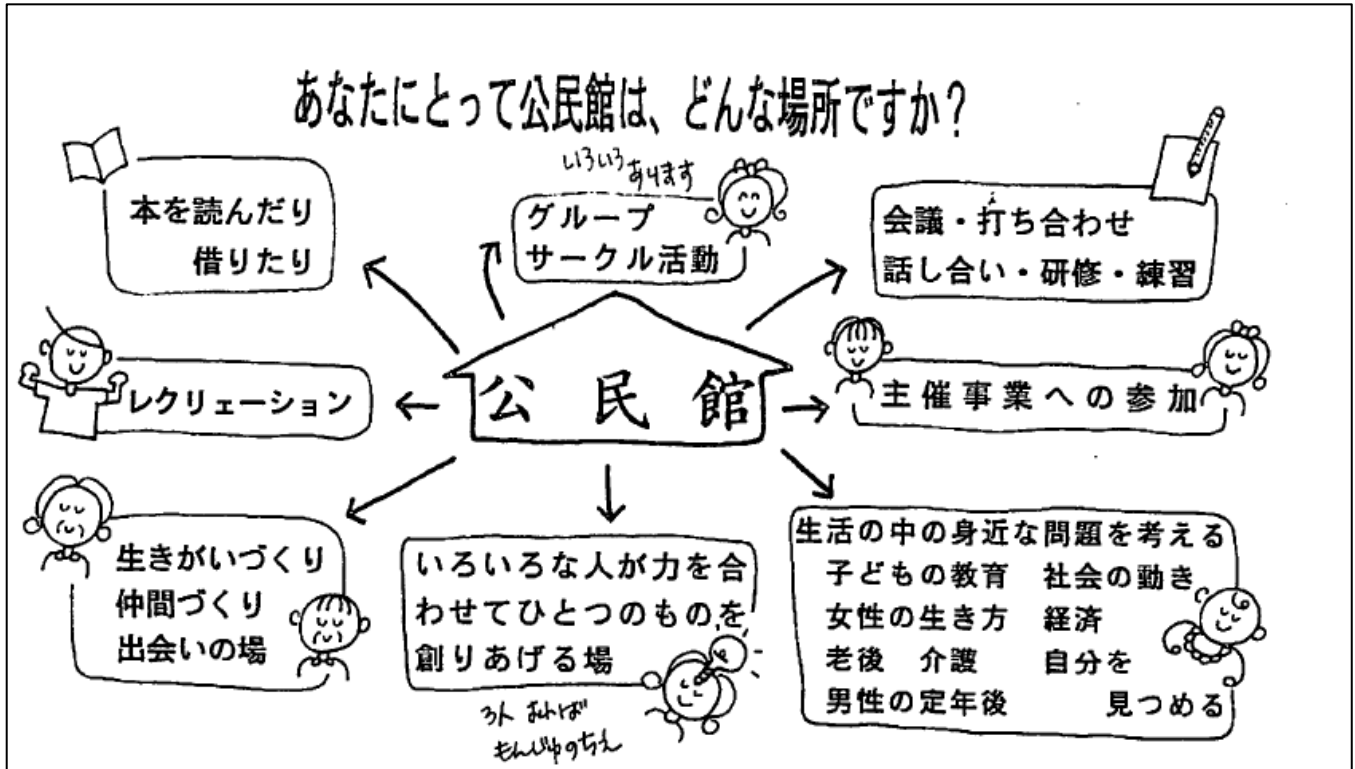 あなたにとって公民館は、どんな場所ですか?
本を読んだり
借りたり
いろいろあります
グループ
サークル活動
会議・打ち合わせ
話し合い・研修・練習
レクリェーション
公民館
主催事業への参加
生きがいづくり
仲間づくり
出会いの場
いろいろな人が力を合
わせてひとつのものを
創りあげる場
3人よれば
もんじゅのちえ
生活の中の身近な問題を考える
子どもの教育 社会の動き
女性の生き方 経済
老後 介護 自分を
男性の定年後 見つめる